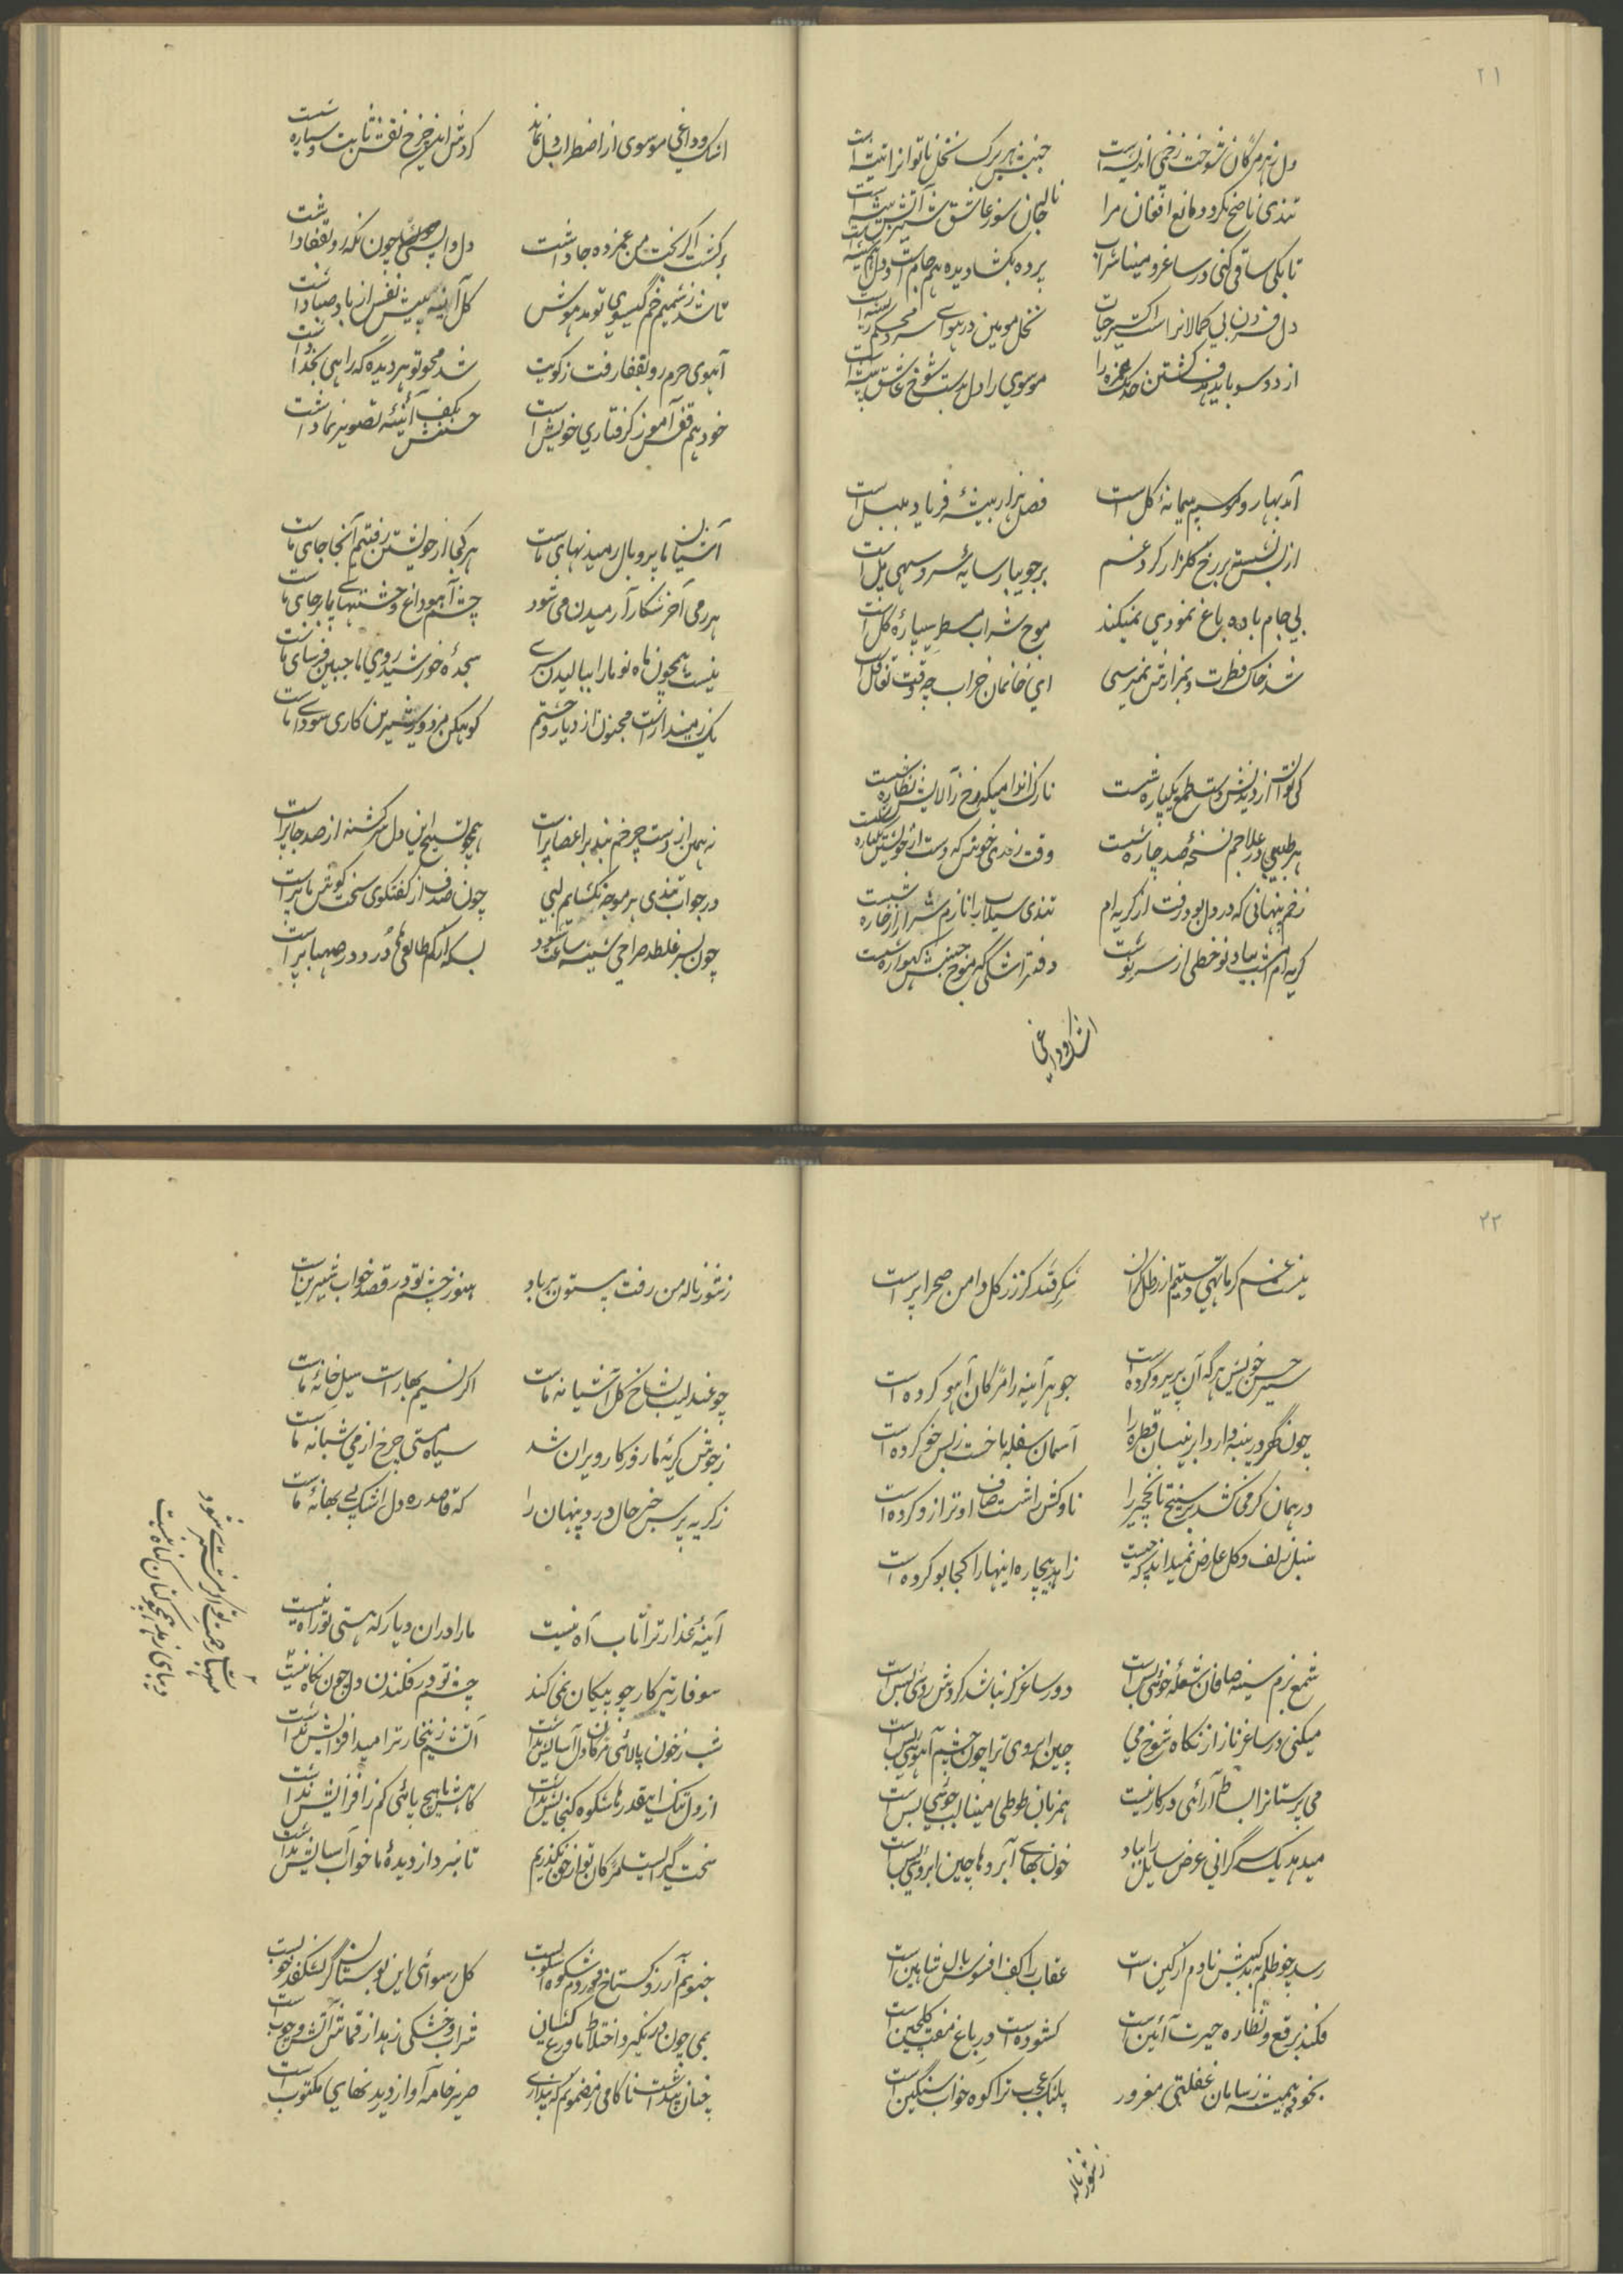 ۲۱
دل ز هر مژگان شوخت زخمی اندیشه است
جنبش هر برک نخل ناتوانرا تیشه است
تندی ناصح نکردد مانع افغان مرا
ناله جان سوز عاشق شیر آتش بیشه است
تا بکی ساقی کنی در ساغر و مینا شراب
پرده بکشا دیده هم جام است و دل هم شیشه است
دل فسردن بی کمالانرا است اکسیر حیات
نخل مومین در هوای سرد محکم ریشه است
از دو سو باید هدف کشتن خدنک غمزه را
موسوی را دل بدست شوخ عاشق پیشه است
آمد بهار و موسم پیمانهٔ کل است
فصل هزار بیشهٔ فریاد بلبل است
از بس نشسته بر رخ کلزار کرد غم
بر جویبار سایهٔ سرو سهی پل است
بی جام باده باغ نمودی نمیکند
موج شراب مسطر سیپارهٔ کل است
شد خاک فطرت و بمزارش نمیرسی
ای خانمان خراب چه وقت تغافل است
کی توان از دیدنش دست طمع یکباره شست
نازک اندامیکه رخ ز آلایش نظاره شست
هر طبیبی در علاجم نسخهٔ صد چاره شست
وقت رندی خوش که دست از خویشتن یکباره شست
زخم پنهانی که در دل بود رفت از کریه ام
تندی سیلاب را نازم شرار از خاره شست
کریه ام امشب بیاد نوخطی از سر نوشت
دفتر اشکی که موج جنبش کهواره شست
اشک وداغی
اشک وداغی موسوی از اضطراب دل نماند
کردش این چرخ نقش ثابت و سیاره شست
برکشت اکر بخت من غمزده جا داشت
دل داپسی چون نکه رو بقفا داشت
تا شد ز شمیم خم کیسوی تو مدهوش
کل آینه پیش نفس از باد صبا داشت
آهوی حرم رو بقفا رفت ز کویت
شد محو تو هر دیده که راهی بخدا داشت
خود هم قفس آموز کرفتاری خویش است
حسنش بکف آئینهٔ تصویر نما داشت
آشیان ما پر و بال رمیدنهای ماست
هر کجا از خویشتن رفتیم آنجا جای ماست
هر رمی آخر شکار آرمیدن می شود
چشم آهو داغ وحشتهای پابرجای ماست
نیست همچون ماه نو ما را ببالیدن سری
سجدهٔ خورشید روی ما جبین فرسای ماست
یک زمیندار است مجنون از دیار وحشتم
کوهکن مزدور شیرین کاری سودای ماست
نه همین از دست چرخم نیل بر اعضا پر است
همچو تسبیح این دل سرکشته از صد جا پر است
در جواب تندی هر موجه نکشایم لبی
چون صدف از کفتکوی سخت کوشم ناپر است
چون بسر غلطد صراحی شیشه ساعت شود
بسکه از کم طالعی کرد در صهبا پر است
۲۲
نیست غم کر ما تهی دستیم از رطل کران
شکر قند کز زر کل دامن صحرا پر است
سیر حسن خویش هر که آن پریرو کرده است
جوهر آینه را مژکان آهو کرده است
چون کهر در پنبه دارد ابر نیسان قطره را
آسمان سفله با خست ز بس خو کرده است
در همان کرمی کشد بر سیخ تا نخچیر را
ناوکش را شست صاف او ترازو کرده است
سنبل زلف و کل عارض نمیداند که چیست
زاهد بیچاره اینها را کجا بو کرده است
شمع بزم سینه صافان شعلهٔ خوئی بس است
دور ساغر کر نباشد کردش روئی بس است
میکنی در ساغر ناز از نکاه شوخ می
چین ابروی ترا چون چشم آهوئی بس است
می پرستانرا بساط آرائی در کار نیست
همزبان طوطی مینا لب جوئی بس است
میدهد یک سر کرانی عرض سایل را بباد
خون بهای آبروها چین ابروئی بس است
رسد چو ظلم کبیدش نادم از کین است
عقاب را کف افسوس بال شاهین است
فکند برقع و نظاره حیرت آئین است
کشوده است در باغ مفت کلچین است
بخود همیشه ز سامان غفلتی مغرور
پلنک عجب ترا کوه خواب سنکین است
ز شور ناله
ز شور ناله من رفت بیستون بر باد
هنوز چشم تو در قصد خواب شیرین است
چو عندلیب بشاخ کل آشیانه ماست
اکر نسیم بهار است سیل خانه ماست
ز جوش کریهٔ ما روزکار ویران شد
سیاه مستی چرخ از می شبانه ماست
ز کریه پرس خبر حال درد پنهان را
که قاصد ره دل اشک بی بهانهٔ ماست
آینهٔ عذار ترا تاب آه نیست
ما را در آن دیار که هستی تو راه نیست
سوفار تیر کار چو پیکان نمی کند
چشم تو در فکندن دل چون نکاه نیست
شب ز خون پالائی مژکان دل آسایش نداشت
آتشیم زینجار ترا میدا فزایش نداشت
از دل تنک اینقدرها شکوه کنجایش نداشت
کاهش ما هیچ پائی کم ز افزایش نداشت
سخت کیرا نیست مژکان تو از خون نکذریم
تا نبرد از دیدهٔ ما خواب آسایش نداشت
جنونم آرزو کستاخ و دردم شکوه آشوب است
کل رسوائی این بوستان کر نشکفد خوب است
بمی چون در نکیرد اختلاط ما ورع کیشان
شراب و خشکی زهد از قماش آتش و چوب است
چنان پنداشت ناکامی ز مضمونم که پنداری
صریر خامه آواز دریدنهای مکتوب است
صهبا رحمت تو اکر نشئه میدهد
دریای زهد همچو کنان کناه نیست